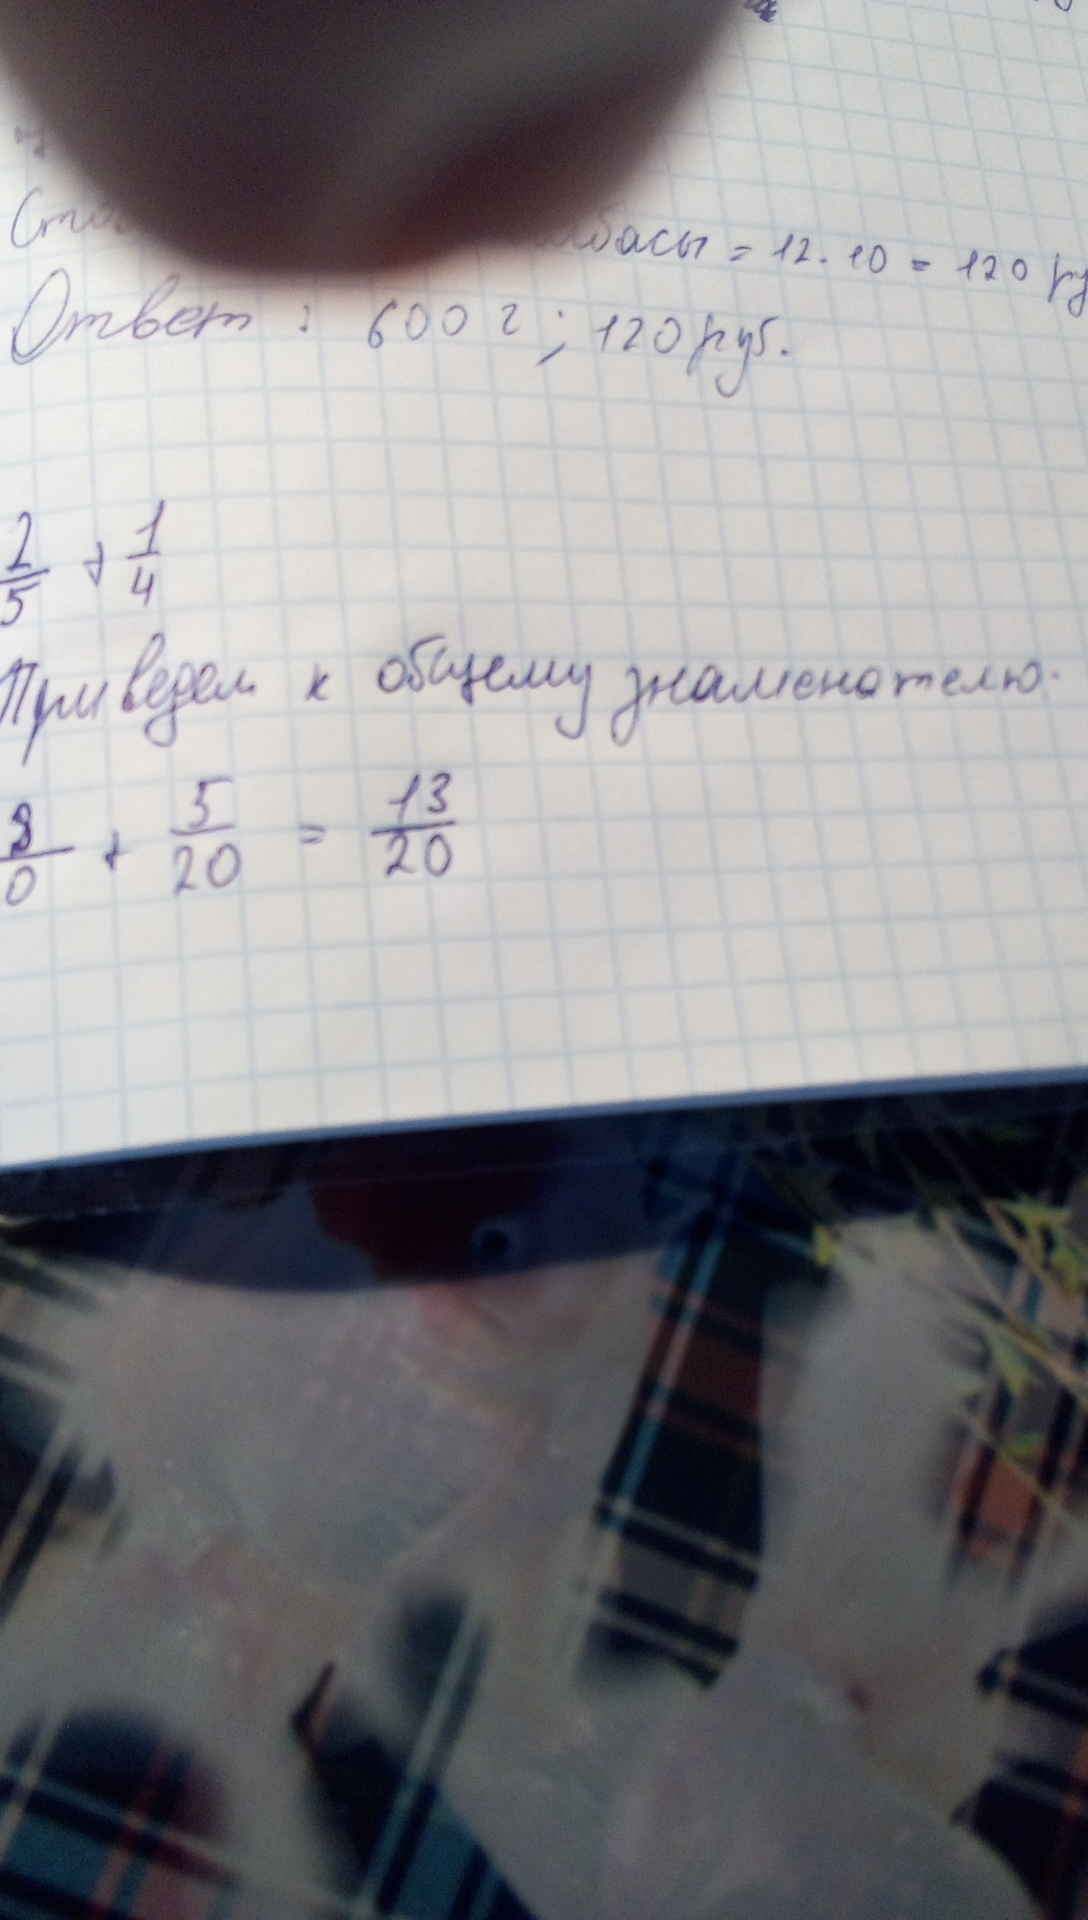 = 12 · 10 = 120
Ответ : 600 г ; 120 руб.
2/5 + 1/4
Приведем к общему знаменателю.
8/0 + 5/20 = 13/20